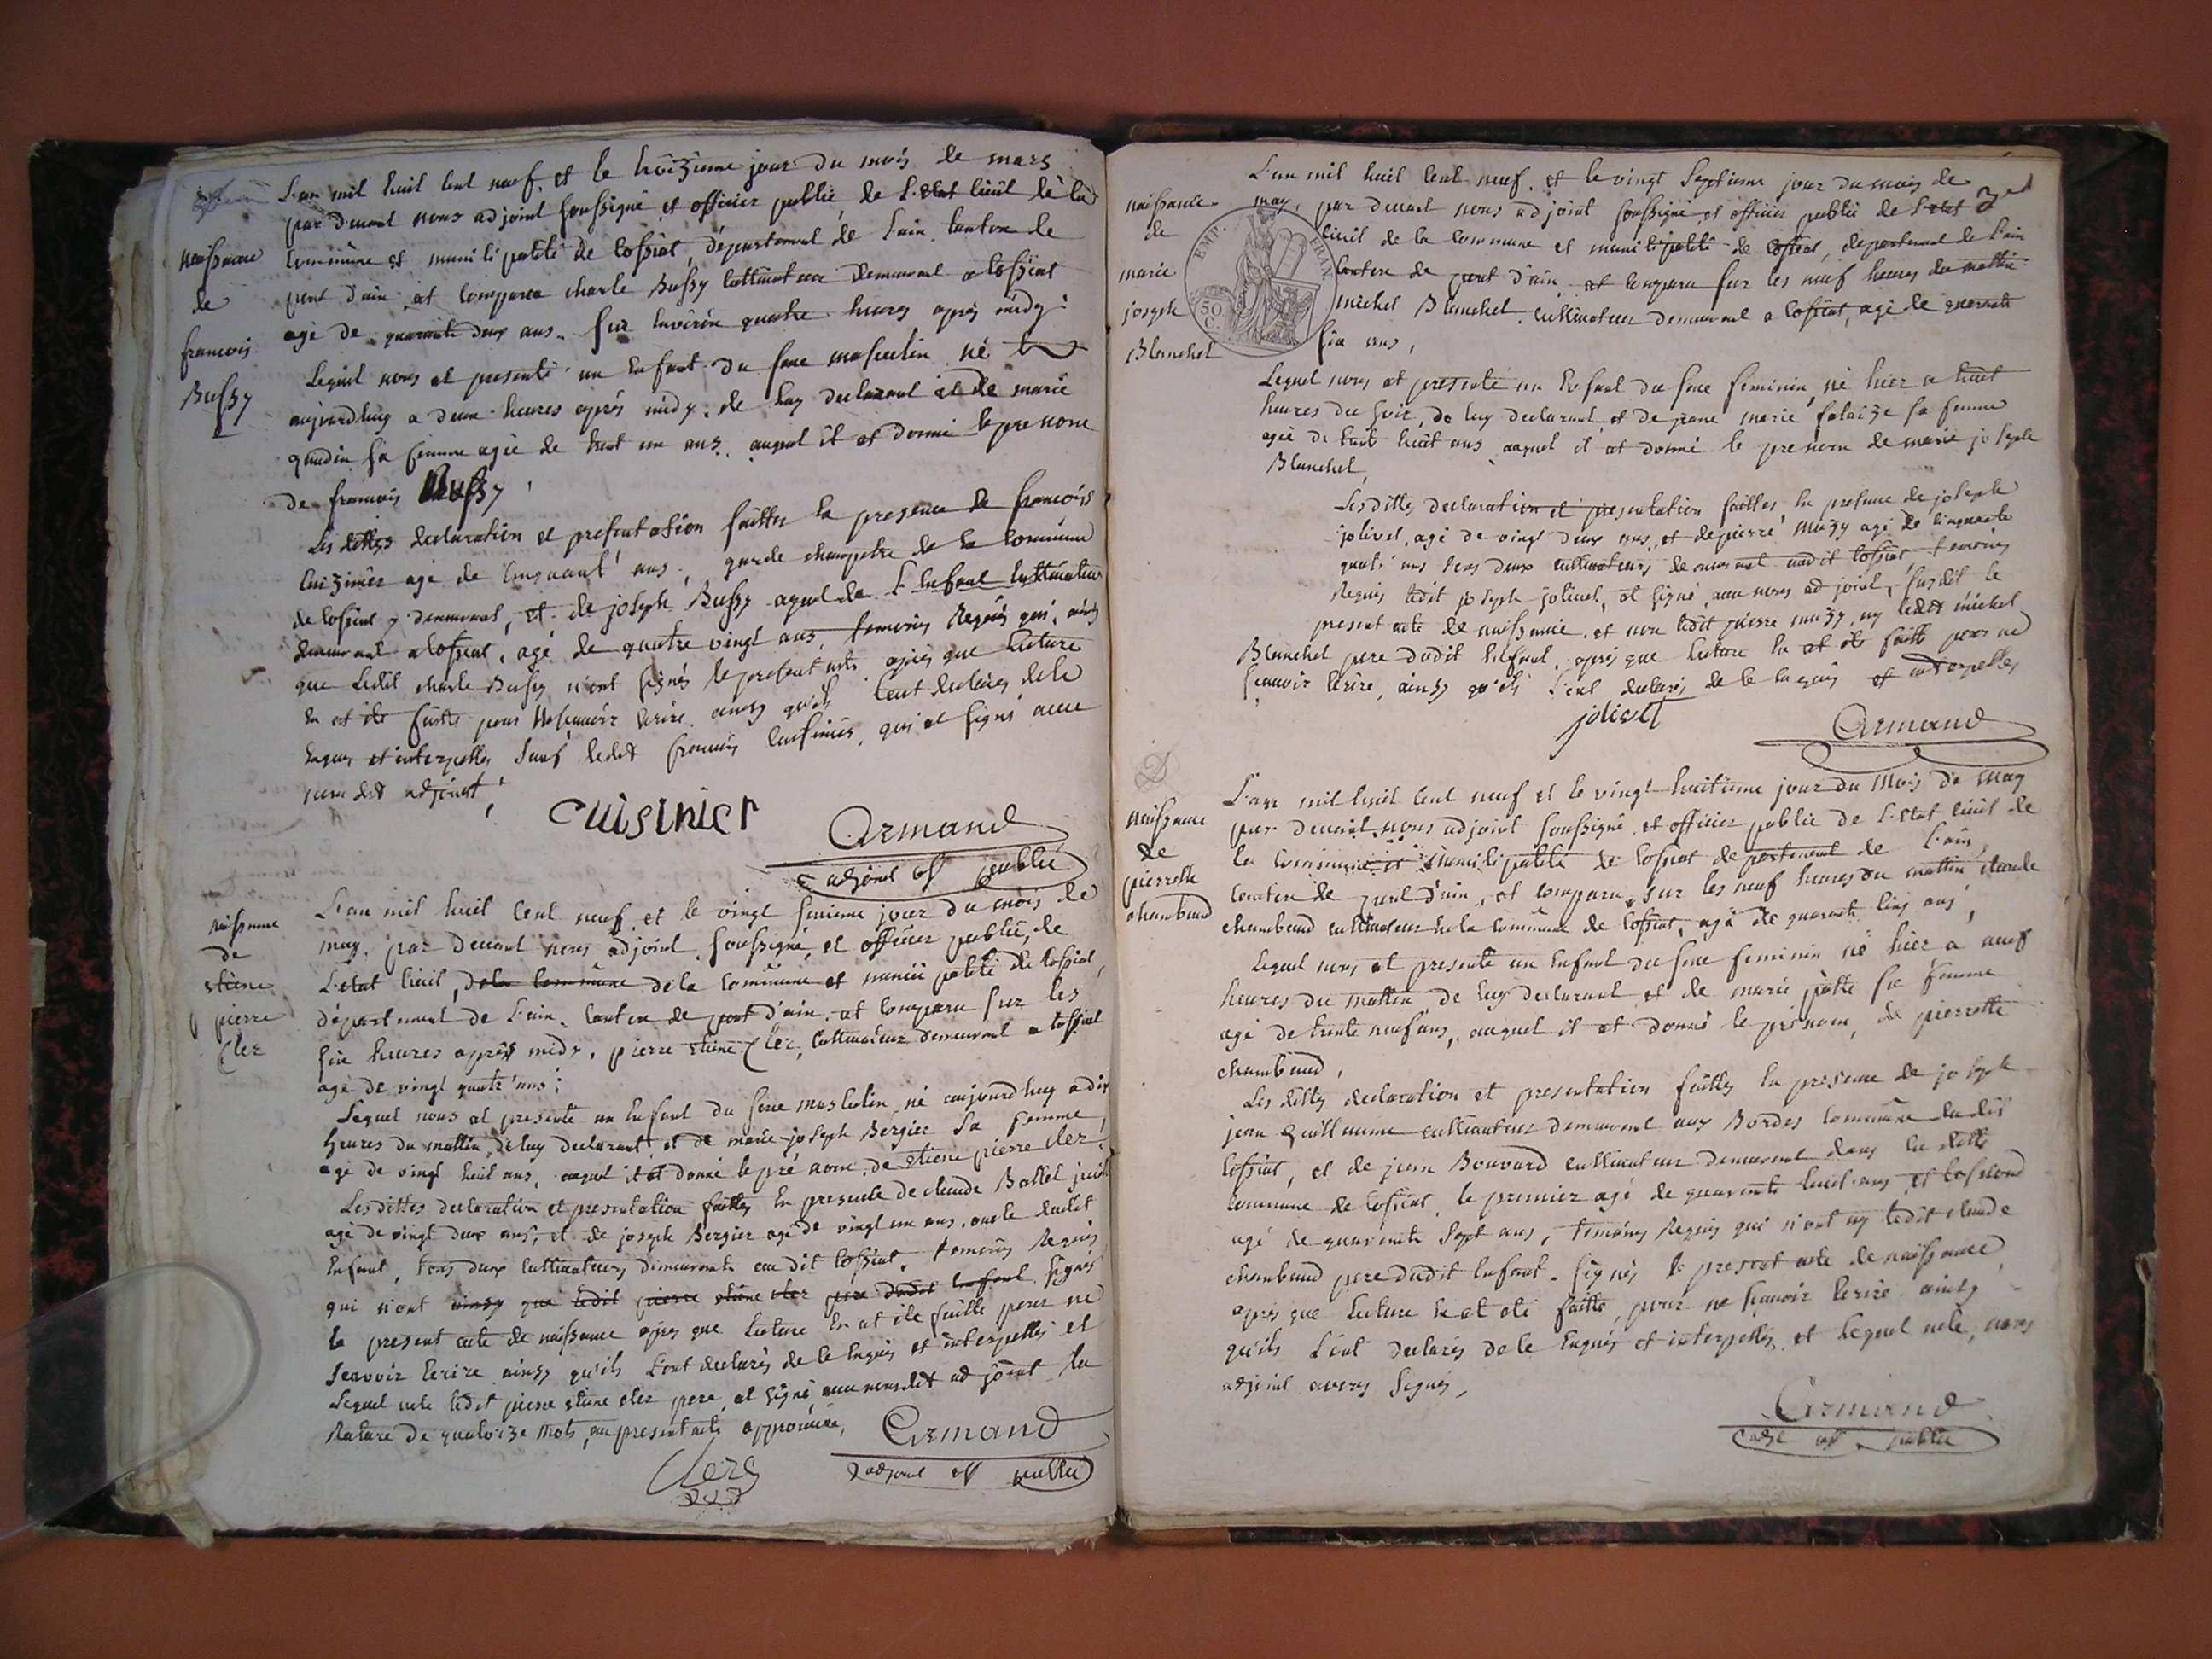 naissance
de
francois
Bussy
L'an mil huit cent neuf, et le troizieme jour du mois de mars
par devant nous adjoint soussigné et officier public de L'etat civil de la
Commune et municipalité de tossiat, département de L'ain canton de
pont d'ain at comparu charle Bussy cultivateur demeurant a tossiat
agé de quarante deux ans. sur environ quatre heures après midy;
Lequel nous at presenté un Enfant du sexe masculin né
aujourdhuy a deux heures après midy, de luy declarant et de marie
gaudin sa femme agée de trent un ans, auquel il at donné le prenom
de francois Bussy,
Les dittes declaration et presentation faittes En presence de francois
Cuizinier agé de Cinquant' ans, garde champetre de la Commune
de tossiat y demeurant, et de joseph Bussy ayeul de L'Enfant Cultivateur
demeurant a tossiat, agé de quatre vingt ans, temoins Requis qui, ainsy
que Ledit charle Bussy n'ont signés le present acte après que Lecture
En at été faitte pour Ne scavoir Ecrire ainsy qu'ils L'ont declarés de le
Enquis et interpellés Sauf ledit francois Cuisinier, qui at signé avec
nous dit adjoint,
Cuisinier
Armand
adjoint off public
naissance
de
etiene
pierre
Clez
L'an mil huit Cent neuf, et le vingt sixieme jour du mois de
may, par devant nous adjoint soussigné, et officier public, de
L'etat Civil, de la Commune de la Commune et municipalité de tossiat,
département de L'ain, Canton de pont d'ain, at comparu sur les
six heures après midy, pierre etiene Clez, Cultivateur demeurant a tossiat
agé de vingt quatr'ans;
Lequel nous at presenté un Enfant du sexe masculin né aujourdhuy a dix
heures du mattin, de luy declarant et de marie joseph Bergier Sa femme
agé de vingt huit ans, auquel il at donné le prénom, de etiene pierre Clez,
Les dittes declaration et presentation faittes En presence de claude Ballet
agé de vingt deux ans, et de joseph Bergier agé de vingt un ans, oncle dudit
Enfant, tous deux Cultivateurs demeurants au dit tossiat, temoins Requis
qui n'ont ainsy que ledit pierre etiene clez pere dudit Enfant, signés
le present acte de naissance après que Lecture En at été faitte pour ne
Scavoir Ecrire ainsy qu'ils L'ont declarés de le Enquis et interpellés et
Lequel acte ledit pierre etiene clez pere, at signé avec nousdit adjoint La
Rature de quatorze mots, au present acte approuvée,
Clerg
Armand
adjoint off public
naissance
de
marie
joseph
Blanchet
EMP. FRAN.
50 C.
L'an mil huit Cent neuf, et le vingt septieme jour du mois de
may, par devant nous adjoint soussigné, et officier public de L'etat
Civil de la Commune et municipalité de tossiat, departement de L'ain
Canton de pont d'ain at comparu sur les neuf heures du mattin
michel Blanchet, Cultivateur demeurant a tossiat, agé de quarante
six ans,
Lequel nous at presenté un Enfant du sexe feminin, né hier a huit
heures du soir, de luy declarant, et de jeane marie falaize sa femme
agée de trent huit ans auquel il at donné le prenom de marie joseph
Blanchet,
Les dittes declaration et presentation faittes, En presence de joseph
jolivet, agé de vingt deux ans, et de pierre muzy agé de Cinquante
quatr' ans tous deux Cultivateurs demeurant audit tossiat, temoins
Requis ledit joseph jolivet, at signé, avec nous adjoint, susdit le
present acte de naissance, et non ledit pierre muzy, ny ledit michel
Blanchet pere dudit Enfant, après que Lecture En at été faitte pour ne
scavoir Ecrire, ainsy qu'ils L'ont declarés de le Enquis et interpellés
jolivet
Armand
naissance
de
pierrette
chambaud
L'an mil huit Cent neuf et le vingt huitieme jour du Mois de May
par devant nous adjoint soussigné, et officier public de L'etat Civil de
la Commune et municipalité de tossiat departement de L'ain,
Canton de pont d'ain, at comparu, sur les neuf heures du mattin claude
chambaud cultivateur de la Commune de tossiat, agé de quarante Cinq ans,
Lequel nous at presenté un Enfant du sexe feminin né hier a neuf
heures du mattin, de luy declarant et de marie sa femme
agé de trente neuf ans, auquel il at donné le prénom, de pierrette
chambaud,
Les dittes declaration et presentation faittes En presence de joseph
jean Guillaume cultivateur demeurant aux Bordes Commune dudit
tossiat, et de jean Bouvard cultivateur demeurant dans la ditte
Commune de tossiat, le premier agé de quarante huit ans et le second
agé de quarante sept ans, temoins Requis qui n'ont ny ledit claude
chambaud pere dudit Enfant, signés le present acte de naissance,
après que Lecture En at été faitte, pour ne scavoir Ecrire ainsy
qu'ils L'ont declarés de le Enquis et interpellés, et Lequel acte, nous
adjoint avons signés,
Armand
adj off public